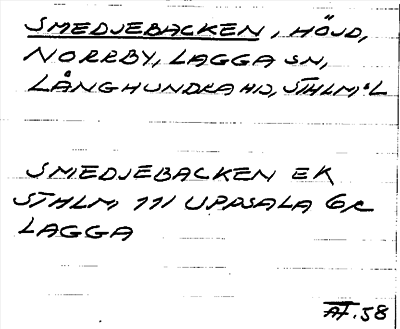 SMEDJEBACKEN, HÖJD,
NORRBY, LAGGA SN,
LÅNGHUNDRA HD, STHLM:L
SMEDJEBACKEN EK
STHLM 111 UPPSALA 6c
LAGGA
AF.58